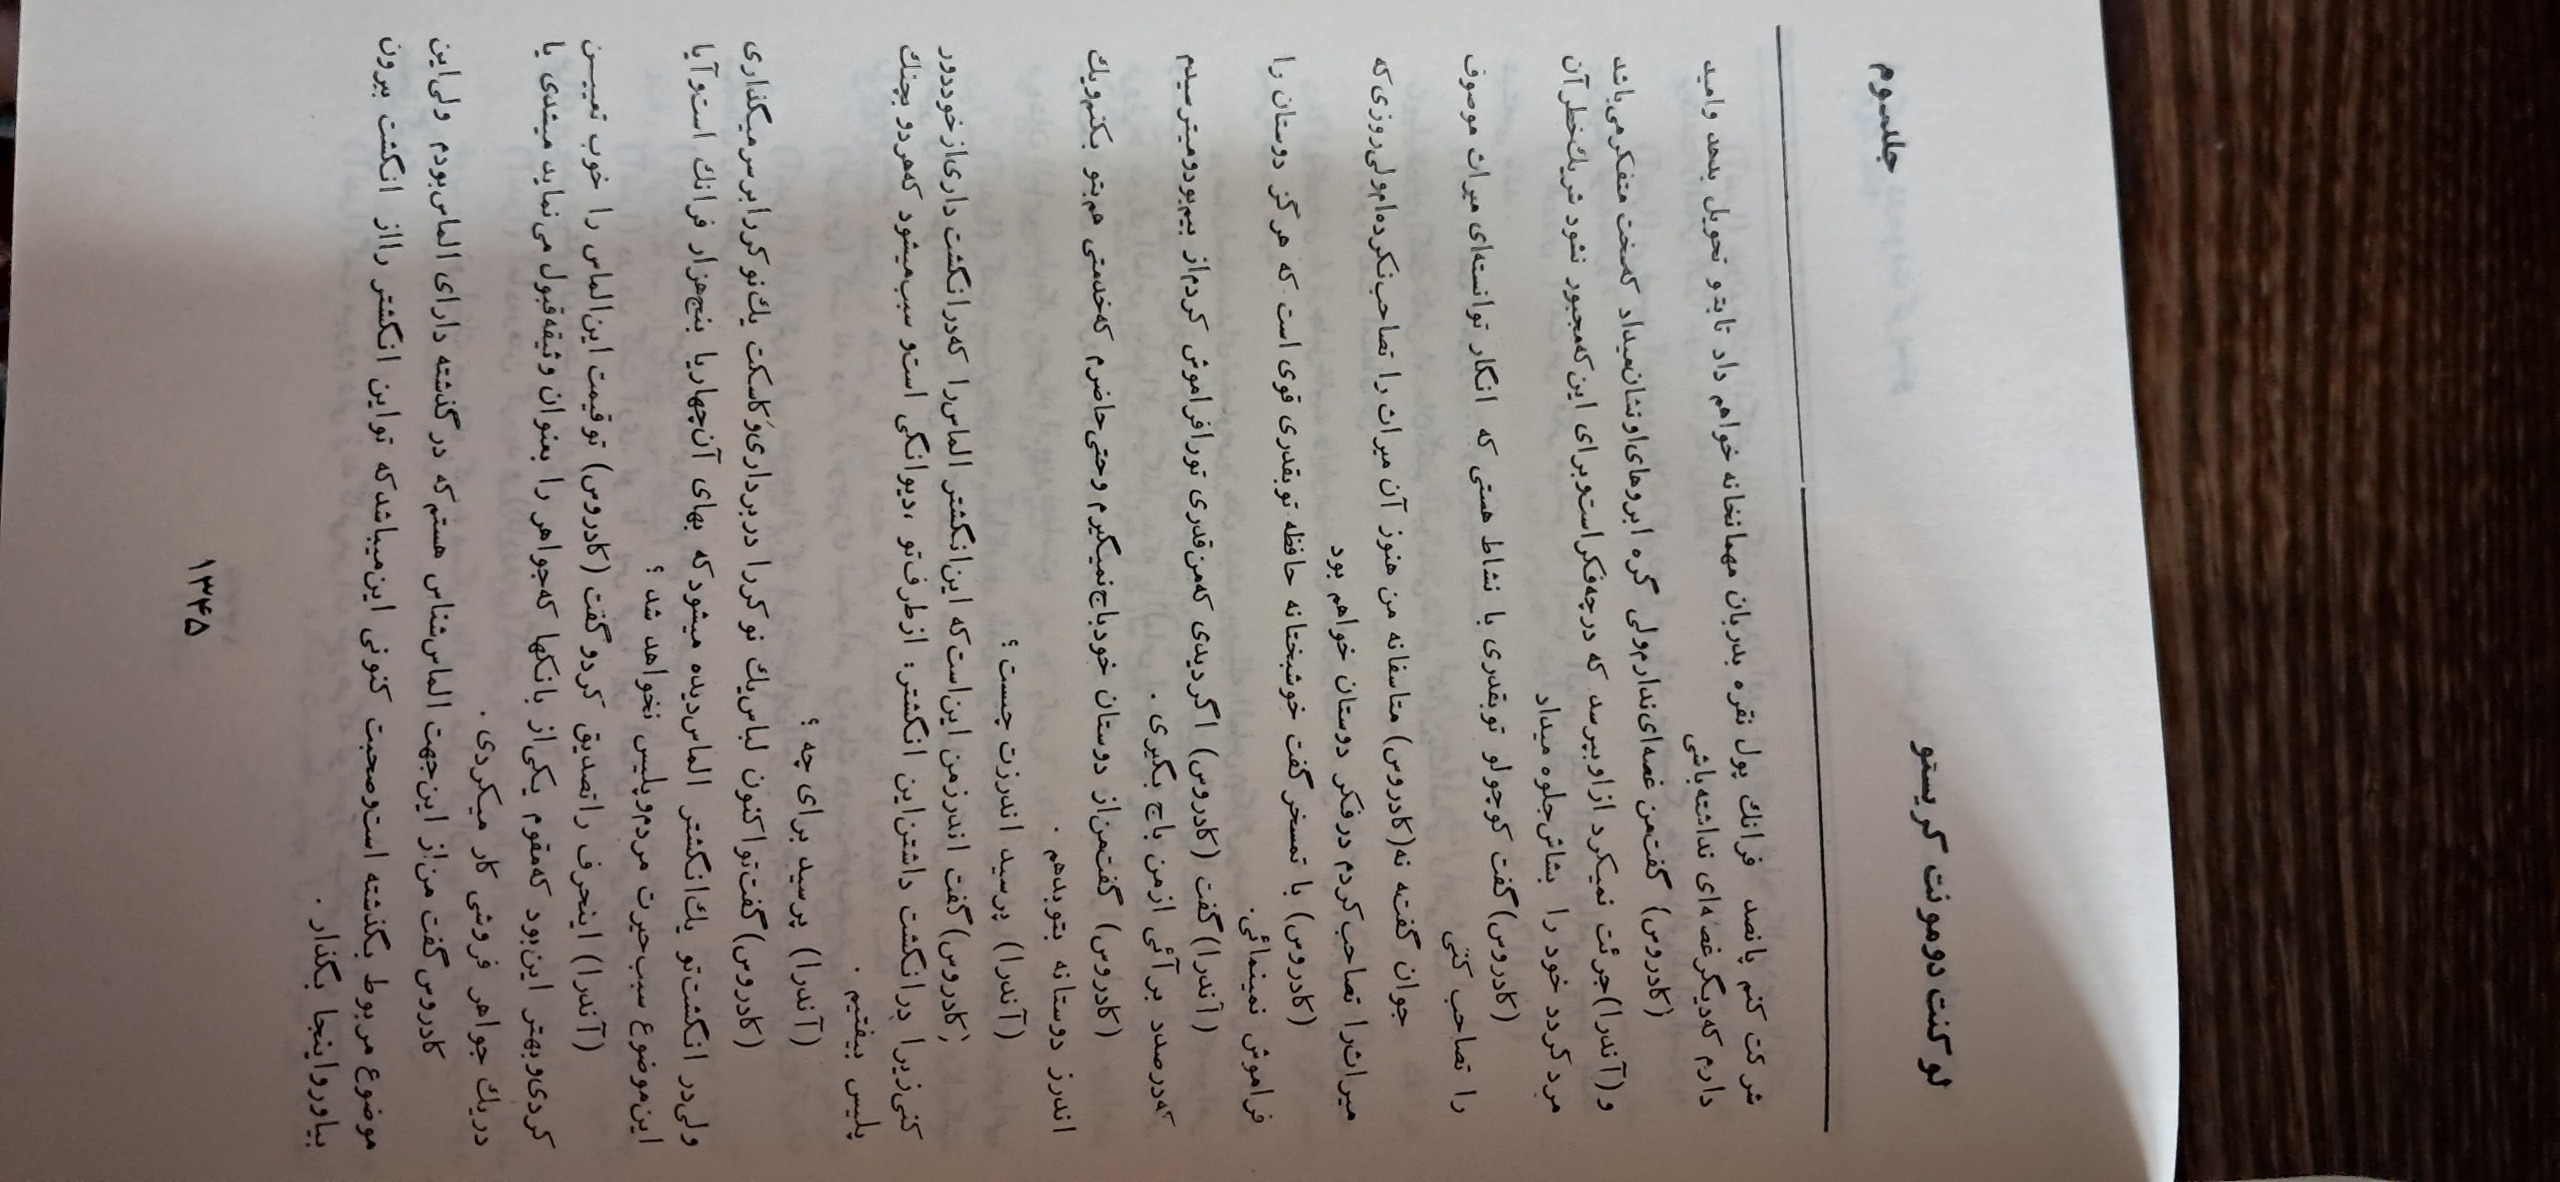 جلدسوم
لوکنت دومونت کریستو
شرکت کنم پانصد فرانك پول نقره بدربان مهمانخانه خواهم داد تابتو تحویل بدهد وامید
دارم که‌دیگر غصه‌ای نداشته‌باشی
(کادروس) گفت‌من غصه‌ای‌ندارم‌ولی گره ابروهای‌اونشان‌میداد که‌سخت متفکر می‌باشد
و(آندرا)جرئت نمیکرد ازاوبپرسد که درچه‌فکراست‌وبرای این‌که‌مجبور نشود شریك‌خطرآن
مرد گردد خود را بشاش‌جلوه میداد
(کادروس)گفت کوچولو توبقدری با نشاط هستی که انگار توانسته‌ای میراث موصوف
را تصاحب کنی
جوان گفت‌نه نه(کادروس) متاسفانه من هنوز آن میراث را تصاحب‌نکرده‌ام‌ولی‌روزی‌که
میراث‌را تصاحب‌کردم درفکر دوستان خواهم بود
(کادروس) با تمسخر گفت خوشبختانه حافظه توبقدری قوی است که هرگز دوستان را
فراموش نمینمائی.
(آندرا)گفت (کادروس) اگردیدی که‌من‌قدری تورافراموش کردم‌از بیم‌بودومیترسیدم
که‌درصدد برآئی ازمن باج بگیری .
(کادروس) گفت‌من‌از دوستان خودباج‌نمیگیرم وحتی‌حاضرم که‌خدمتی هم‌بتو بکنم‌ویك
اندرز دوستانه بتوبدهم .
(آندرا) پرسید اندرزت چیست ؟
(کادروس)گفت اندرزمن این‌است‌که این‌انگشتر الماس‌را که‌درانگشت داری‌ازخوددور
کنی‌زیرا درانگشت داشتن‌این انگشتر: ازطرف‌تو ،دیوانگی است‌و سبب‌میشود که‌هردو بچنك
پلیس بیفتیم .
(آندرا) پرسید برای چه ؟
(کادروس)گفت‌تواکنون لباس‌یك نوکررا دربرداری‌وکاسکت یك‌نوکررابرسرمیگذاری
ولی‌در انگشت‌تو یك‌انگشتر الماس‌دیده میشودکه بهای آن‌چهاریا پنج‌هزار فرانك است‌وآیا
این‌موضوع سبب‌حیرت مردم‌وپلیس نخواهد شد ؟
(آندرا) اینحرف راتصدیق کردو گفت (کادروس) توقیمت این‌الماس را خوب تعیین
کردی‌وبهتر این‌بود که‌مقوم یکی‌از بانکها که‌جواهر را بعنوان وثیقه‌قبول می‌نماید میشدی یا
دریك جواهر فروشی کار میکردی .
کادروس گفت من‌از این‌جهت الماس‌شناس هستم‌که در گذشته دارای الماس‌بودم ولی‌این
موضوع مربوط بگذشته است‌وصحبت کنونی این‌میباشدکه تواین انگشتر رااز انگشت بیرون
بیاورواینجا بگذار .
۱۳۴۵